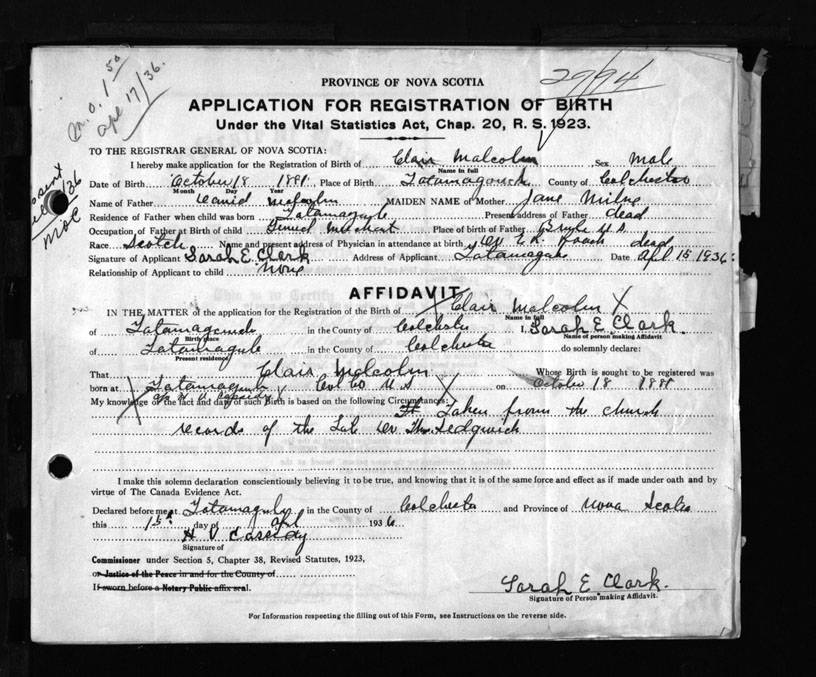 M.O. 1 50
29/94
Apl 17/36.
PROVINCE OF NOVA SCOTIA
APPLICATION FOR REGISTRATION OF BIRTH
Under the Vital Statistics Act, Chap. 20, R. S. 1923.
TO THE REGISTRAR GENERAL OF NOVA SCOTIA:
I hereby make application for the Registration of Birth of Clair Malcolm Sex Male
Name in full
Date of Birth October 18 Place of Birth Tatamagouche County of Colchester
Month Day Year
Name of Father Malcolm MAIDEN NAME of Mother Jane Milne
Residence of Father when child was born Present address of Father dead
Occupation of Father at Birth of child General Merchant Place of birth of Father
Race Scotch Name and present address of Physician in attendance at birth Dr E. K. Roach dead
Signature of Applicant Sarah E. Clark Address of Applicant Date Apl 15 1936
Relationship of Applicant to child None
AFFIDAVIT
IN THE MATTER of the application for the Registration of the Birth of Clair Malcolm X
Name in full
of in the County of Colchester I, Sarah E. Clark.
Birth place Name of person making Affidavit
of in the County of Colchester do solemnly declare:
Present residence
That Clair Malcolm Whose Birth is sought to be registered was
born at Col Co on October 18
My knowledge of the fact and day of such Birth is based on the following Circumstances: Taken from the church
records of the Late Dr Thos Sedgwick
I make this solemn declaration conscientiously believing it to be true, and knowing that it is of the same force and effect as if made under oath and by
virtue of The Canada Evidence Act.
Declared before me at in the County of Colchester and Province of Nova Scotia
this day of Apl 1936
H V Cassidy
Signature of
Commissioner under Section 5, Chapter 38, Revised Statutes, 1923,
or Justice of the Peace in and for the County of
If sworn before a Notary Public affix seal.
Sarah E Clark.
Signature of Person making Affidavit.
For Information respecting the filling out of this Form, see Instructions on the reverse side.